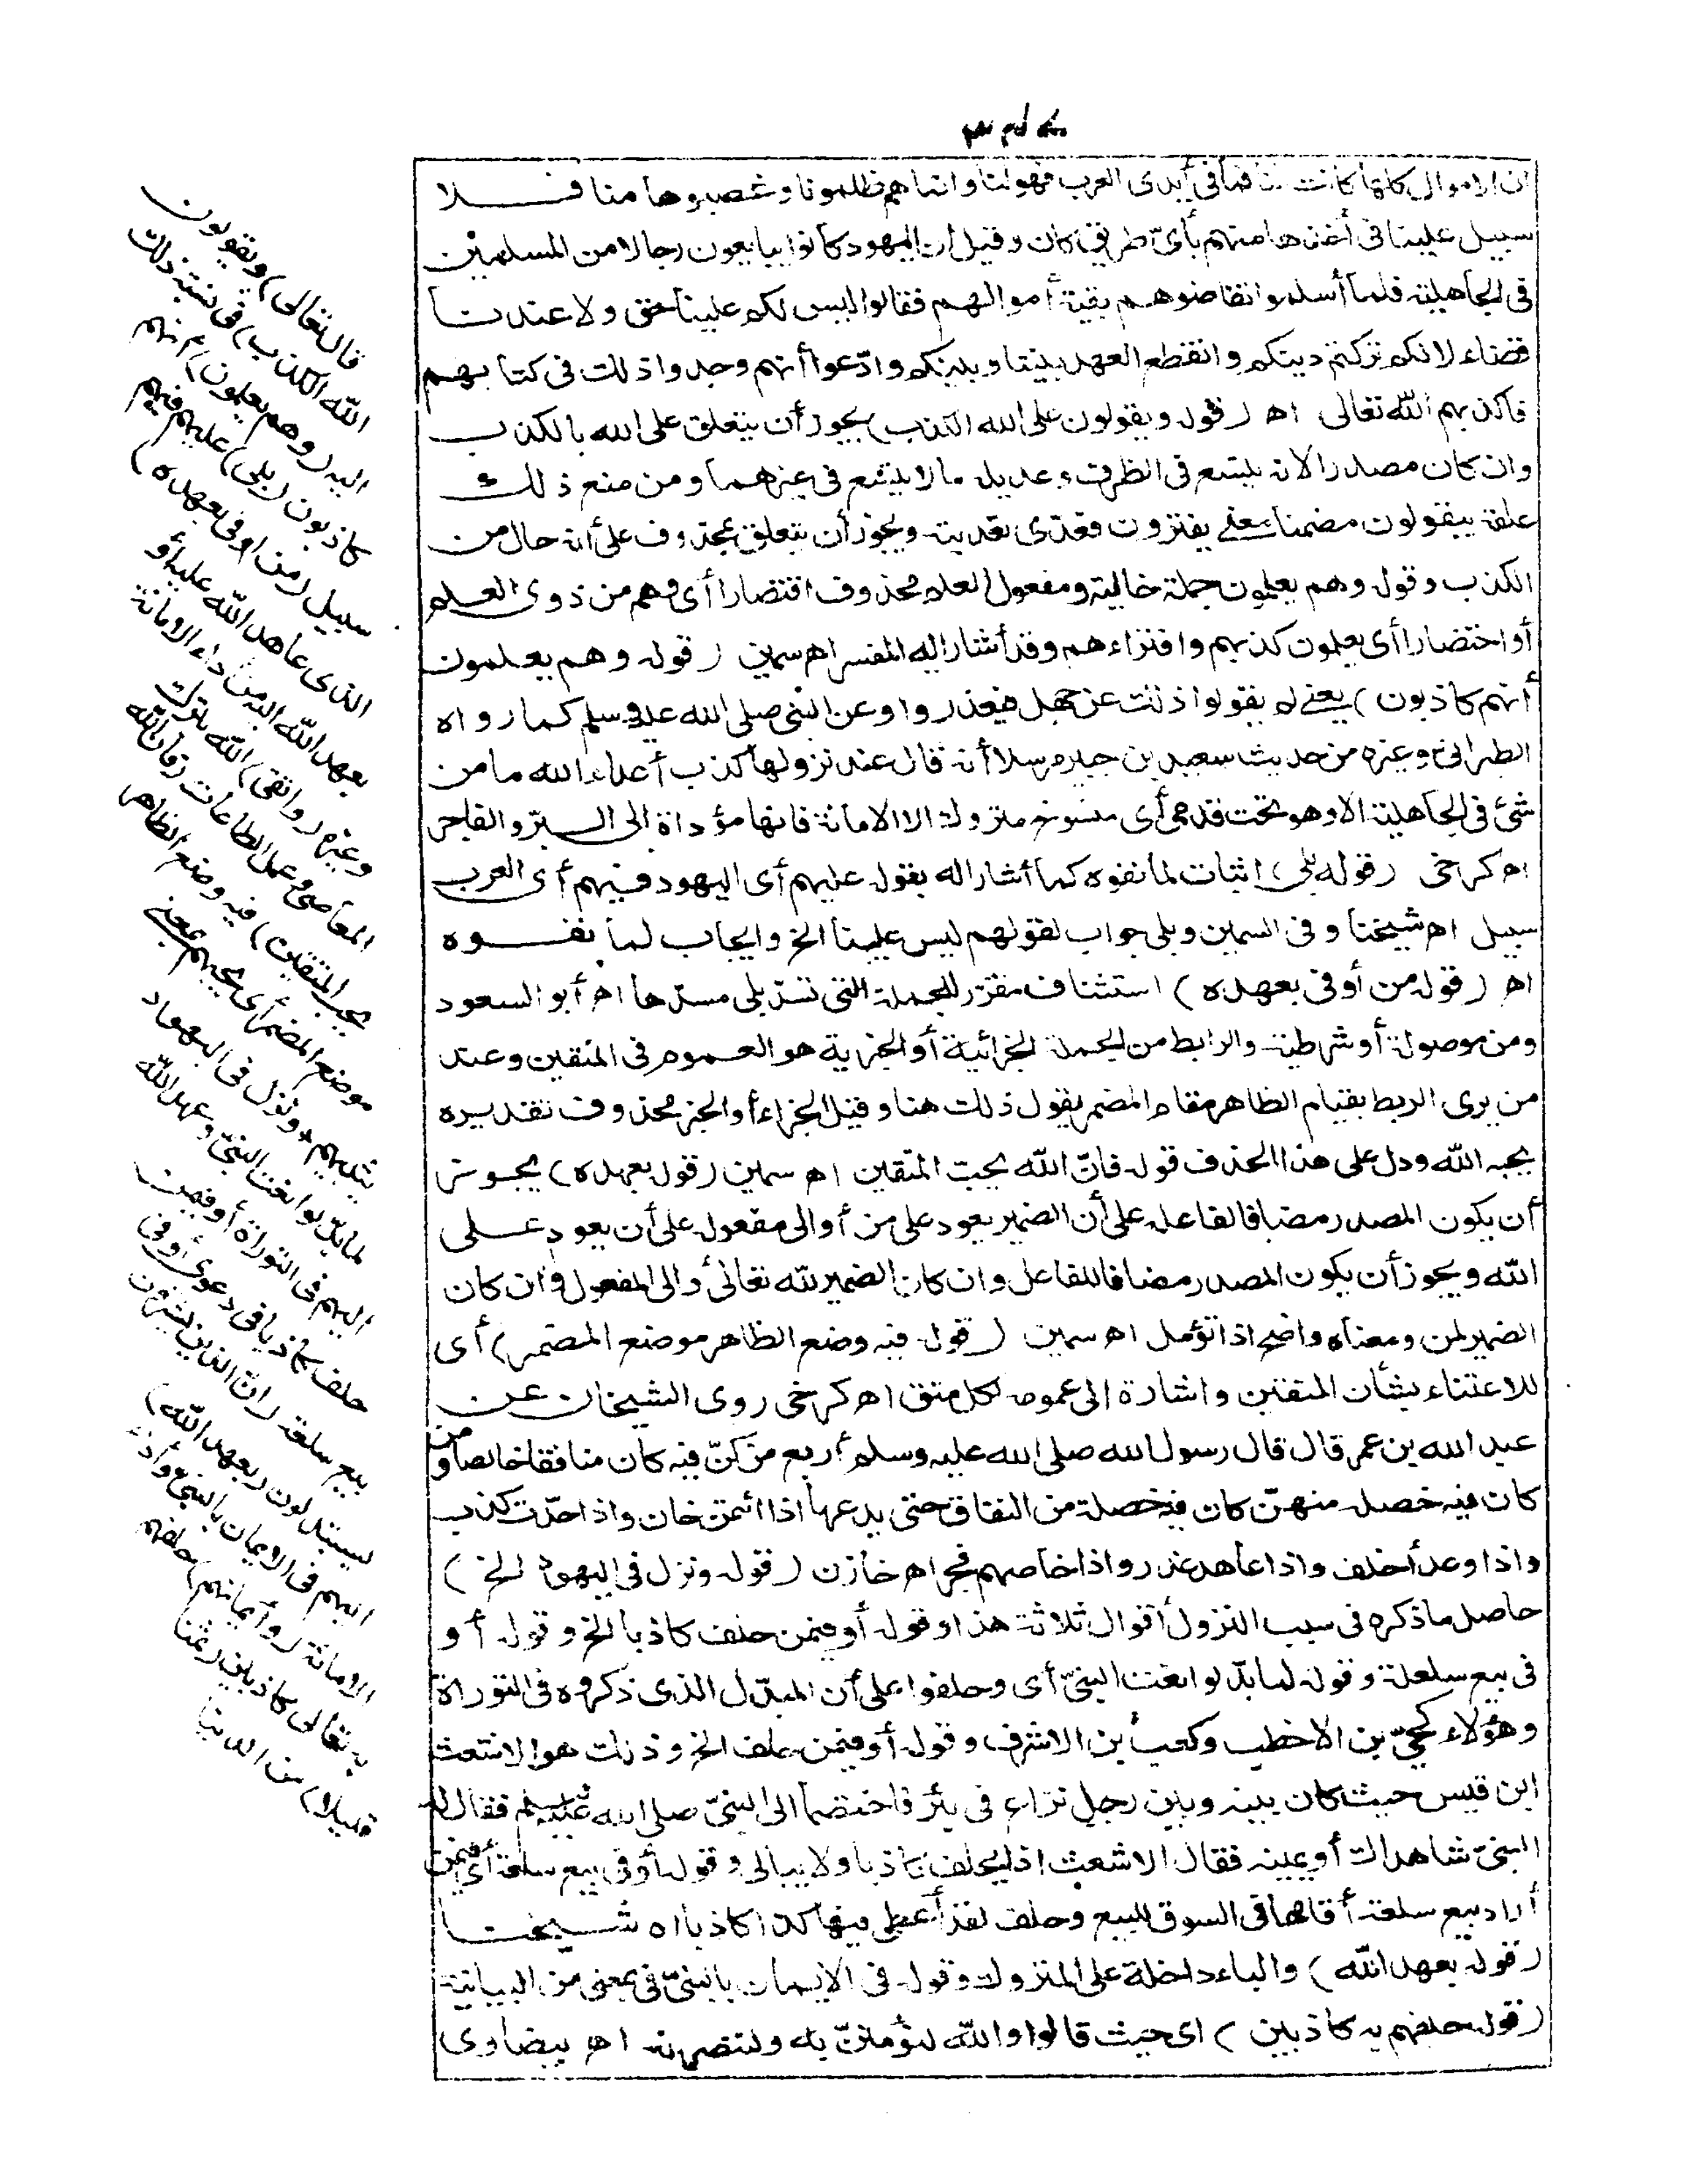 ان الاموال كلها كانت لنا فما فى أيدى العرب فهو لنا وانما هم ظلمونا وغصبوها منا فلا
سبيل علينا فى أخذها منهم بأى طريق كان وقيل ان اليهود كانوا يبايعون رجالا من المسلمين
فى الجاهلية فلما أسلموا تقاضوهم بقية أموالهم فقالوا ليس لكم علينا حق ولا عندنا
قضاء لانكم تركتم دينكم وانقطع العهد بيننا وبينكم وادّعوا أنهم وجدوا ذلك فى كتابهم
فأكذبهم الله تعالى اه (قوله ويقولون على الله الكذب) يجوز أن يتعلق على الله بالكذب
وان كان مصدرا لانه يتسع فى الظرف وعديله مالا يتسع فى غيرهما ومن منع ذلك
علقه بيقولون مضمنا معنى يفترون فعدّى تعديته ويجوز أن يتعلق بمحذوف على أنه حال من
الكذب وقوله وهم يعلمون جملة حالية ومفعول العلم محذوف اقتصارا أى وهم من ذوى العلم
أو اختصارا أى يعلمون كذبهم وافتراءهم وقد أشار اليه المفسر اه سمين (قوله وهم يعلمون
أنهم كاذبون) يعنى لم يقولوا ذلك عن جهل فيعذروا وعن النبى صلى الله عليه وسلم كما رواه
الطبرانى وغيره من حديث سعيد بن جبير مرسلا أنه قال عند نزولها كذب أعداء الله ما من
شئ فى الجاهلية الا وهو تحت قدمى أى منسوخ متروك الا الامانة فانها مؤداة الى البرّ والفاجر
اه كرخى (قوله بلى) اثبات لما نفوه كما أشار اله بقوله عليهم أى اليهود فيهم أى العرب
سبيل اه شيخنا وفى السمين وبلى جواب لقولهم ليس علينا الخ وايجاب لما نفوه
اه (قوله من أوفى بعهده) استئناف مقرّر للجملة التى تسدّ بلى مسدّها اه أبو السعود
ومن موصولة أو شرطية والرابط من الجملة الجزائية أو الخبرية هو العموم فى المتقين وعند
من يرى الربط بقيام الظاهر مقام المضمر يقول ذلك هنا وقيل الجزاء أو الخبر محذوف تقديره
يحبه الله ودل على هذا الحذف قوله فانّ الله يحبّ المتقين اه سمين (قوله بعهده) يجوز
أن يكون المصدر مضافا لفاعله على أن الضمير يعود على من أو الى مفعوله على أن يعود على
الله ويجوز أن يكون المصدر مضافا للفاعل وان كان الضمير لله تعالى أو الى المفعول وان كان
الضمير لمن ومعناه واضح اذا تؤمل اه سمين (قوله فيه وضع الظاهر موضع المضمر) أى
للاعتناء بشأن المتقين واشارة الى عمومه لكل متق اه كرخى روى الشيخان عن
عبد الله بن عمر قال قال رسول الله صلى الله عليه وسلم أربع من كنّ فيه كان منافقا خالصا ومن
كان فيه خصلة منهنّ كان فيه خصلة من النفاق حتى يدعها اذا ائتمن خان واذا حدّث كذب
واذا وعد أخلف واذا عاهد غدر واذا خاصم فجر اه خازن (قوله ونزل فى اليهود الخ)
حاصل ما ذكره فى سبب النزول أقوال ثلاثة هذا وقوله أو فيمن حلف كاذبا الخ وقوله أو
فى بيع سلعة وقوله لما بدّلوا نعت النبىّ أى وحلفوا على أن المبدّل الذى ذكروه فى التوراة
وهؤلاء كحيىّ بن الاخطب وكعب بن الاشرف وقوله أو فيمن حلف الخ وذلك هو الاشعث
ابن قيس حيث كان بينه وبين رجل نزاع فى بئر فاختصما الى النبىّ صلى الله عليه وسلم فقال له
النبىّ شاهداك أو يمينه فقال الاشعث اذا يحلف كاذبا ولا يبالى وقوله أو فى بيع سلعة أى فيمن
أراد بيع سلعة أقامها فى السوق للبيع وحلف لقد أعطى فيها كذا كاذبا اه شيخنا
(قوله بعهد الله) والباء داخلة على المتروك وقوله فى الايمان بالنبىّ فى بمعنى من البيانية
(قوله حلفهم به كاذبين) أى حيث قالوا والله لنؤمننّ به ولننصرنه اه بيضاوى
قال تعالى (ويقولون
الله الكذب) فى نسبة ذلك
اليه (وهم يعلمون) أنهم
كاذبون (بلى) عليهم فيهم
سبيل (من أوفى بعهده)
الذى عاهد الله عليه أو
بعهد الله اليه من أداء الامانة
وغيره (واتقى) الله بترك
المعاصى وعمل الطاعات (فان الله
يحب المتقين) فيه وضع الظاهر
موضع المضمر أى يحبهم بمعنى
يثيبهم * ونزل فى اليهود
لما بدّلوا نعت النبىّ وعهد الله
اليهم فى التوراة أو فيمن
حلف كاذبا فى دعوى أو فى
بيع سلعة (ان الذين يشترون
يستبدلون (بعهد الله)
اليهم فى الايمان بالنبىّ وأداء
الامانة (وأيمانهم) حلفهم
به تعالى كاذبين (ثمنا
قليلا) من الدنيا